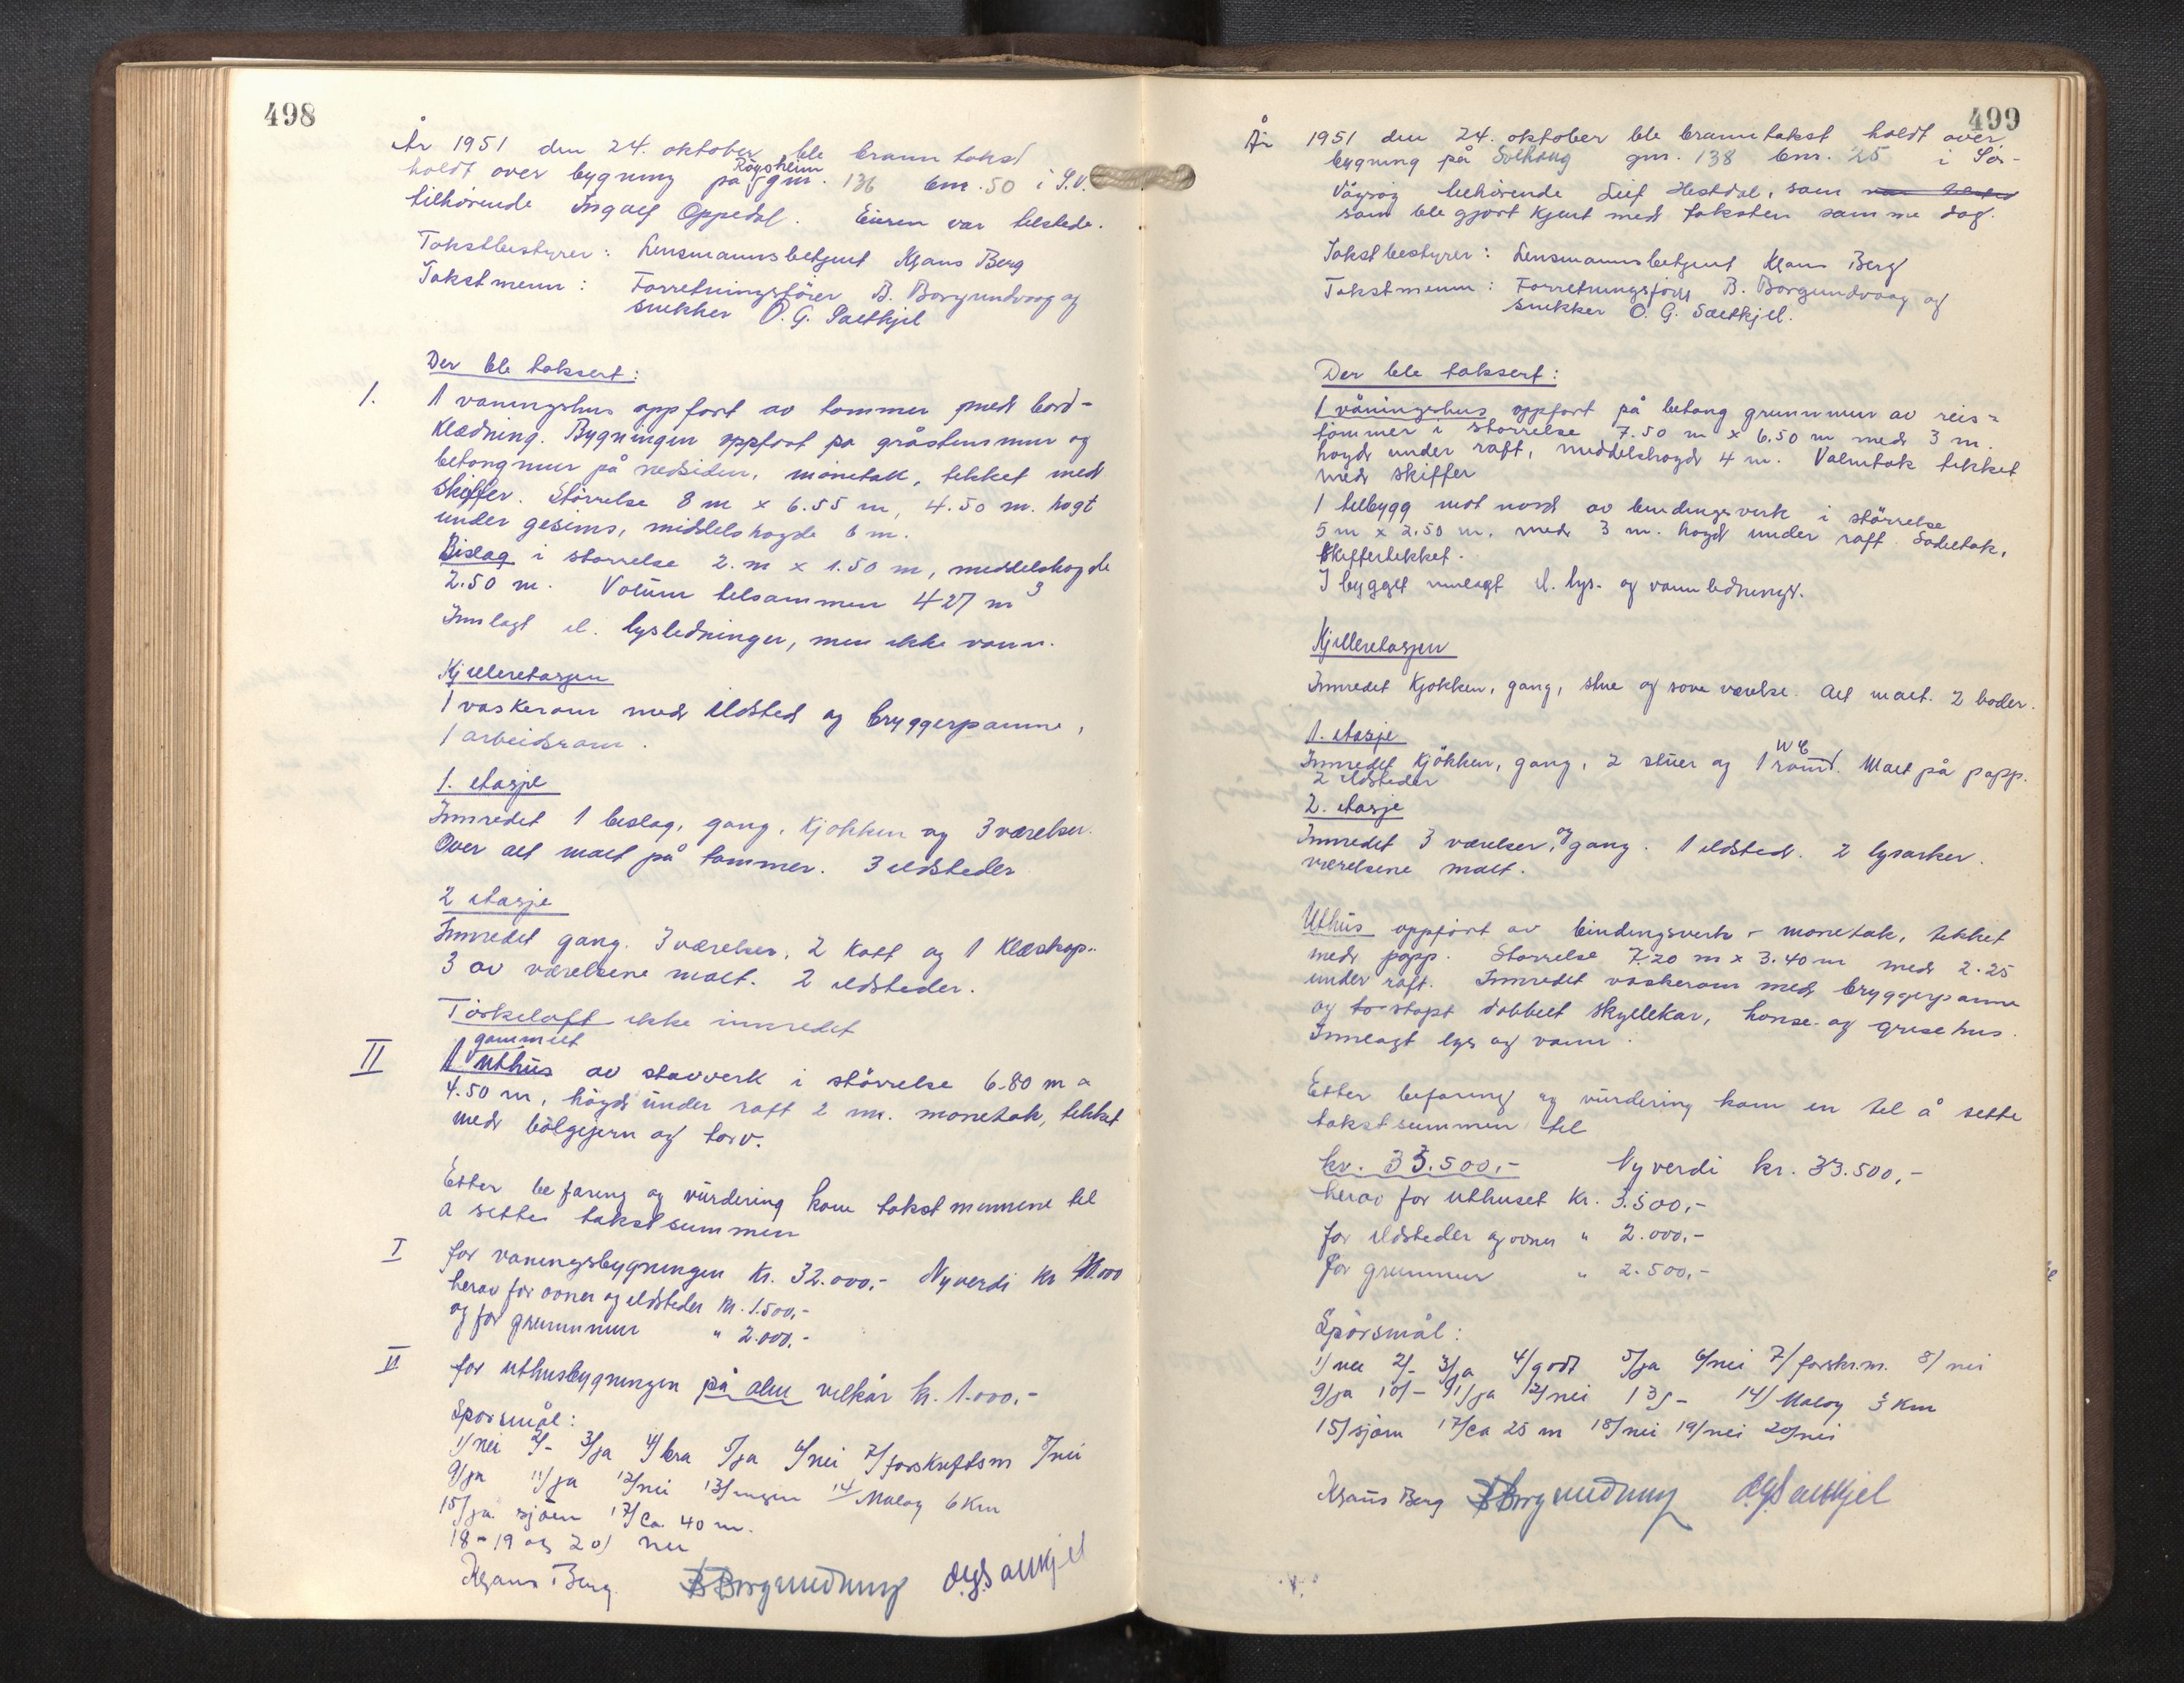 498
År 1951 den 24. oktober ble branntakst
holdt over bygning på Rågsheim gnr. 136 bnr. 50 i S.V.
tilhörende Ingolf Oppedal. Eieren var tilstede.
Takstbestyrer: Lensmannsbetjent Klaus Berg
Takstmenn: Forretningsförer B. Borgundvaag og
snekker O. G. Saltkjel
Der ble taksert:
1. 1 vaningshus oppfort av tommer med bord-
klædning. Bygningen oppfort pa gråstensmur og
betongmur på nedsiden, mönetak, tekket med
skiffer. Störrelse 8 m x 6.55 m, 4.50 m. hogt
under gesims, middelshogde 6 m.
Bislag i storrelse 2. m x 1.50 m, middelshogde
2.50 m. Volum tilsammen 427 m3
Innlagt el. lysledninger, men ikke vann.
Kjelleretasjen
1 vaskerom med ildsted og bryggerpanne,
1 arbeidsrom.
1. etasje
Innredet 1 beslag, gang, kjokken og 3 værelser.
Over alt malt på tommer. 3 ildsteder
2 etasje
Innredet gang. 3 værelser, 2 kott og 1 klæskap.
3 av værelsene malt. 2 ildsteder.
Törkeloft ikke innredet
II 1 gammelt uthus av stavverk i störrelse 6.80 m x
4.50 m, höyd under raft 2 m. monetak, tekket
med bölgejern og torv.
Etter befaring og vurdering kom takstmennene til
a sette takstsummen
I for vaningsbygningen Kr. 32.000,- Nyverdi kr
herav for ovner og ildsteder kr. 1.500,-
og for grunnmur " 2.000,-
II for uthusbygningen på alm vilkår kr. 1.000,-
Sporsmål:
1/ nei 2/- 3/ja 4/ bra 5/ja 6/nei 7/ forskriftsm 8/nei
9/ja 11/ ja 12/nei 13/ ingen 14/ Maloy 6 km
15/ ja. sjöen 17/ Ca. 40 m.
18-19 og 20/ nei
Klaus Berg. B Borgundvaag O.G. Saltkjel
499
År 1951 den 24. oktober ble branntakst holdt over
bygning på Solhaug gnr. 138 bnr. 25 i Sör-
Vågsöy tilhörende Leif Hestdal, som var tilsted
som ble gjort kjent med taksten samme dag.
Takstbestyrer: Lensmannsbetjent Klaus Berg
Takstmenn: Forretningsförer B. Borgundvaag og
snekker O. G. Saltkjel.
Der ble taksert:
1 våningshus oppfort på betong grunnmur av reis-
tömmer i storrelse 7.50 m x 6.50 m med 3 m.
hoyd under raft, middelshoyd 4 m. Valmtak tekket
med skiffer
1 tilbygg mot nord av bindingsverk i störrelse
5 m x 2.50 m. med 3 m. hoyd under raft. Sadeltak,
skiffertekket.
I bygget innlagt el. lys- og vannledninger.
Kjelleretasjen
Innredet kjokken, gang, stue og sove værelse. Alt malt. 2 boder.
1. etasje
Innredet kjökken, gang, 2 stuer og 1 WC rom. Malt på papp.
2 ildsteder
2. etasje
Innredet 3 værelser, og gang. 1 ildsted. 2 lysarker.
værelsene malt.
Uthus oppfört av bindingsverk - monetak, tekket
med papp. Storrelse 7.20 m x 3.40 m med 2.25
under raft. Innredet vaskerom med bryggerpanne
og to stöpt dobbelt skyllekar, honse- og grisehus.
Innlagt lys og vann.
Etter befaring og vurdering kom en til å sette
takstsummen til
kr. 33.500,- Nyverdi kr. 33.500,-
herav for uthuset Kr. 3.500,-
for ildsteder og ovner " 2.000,-
for grunnmur " 2.500,-
Spörsmål:
1/ nei 2/- 3/ja 4/godt 5/ja 6/nei 7/ forskr.m. 8/ nei
9/ja 10/- 11/ja 12/nei 13/- 14/ Maloy 3 Km
15/ sjöen 17/ca 25 m 18/nei 19/nei 20/nei
Klaus Berg B Borgundvaag O.G. Saltkjel